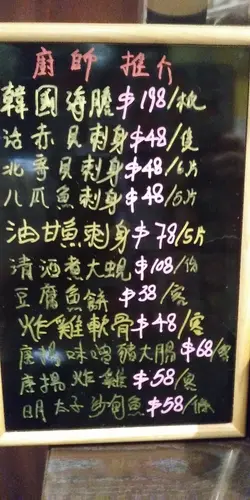 廚師 推介
韓國海膽 $198/板
活赤貝刺身 $48/隻
北寄貝刺身 $48/6片
八爪魚刺身 $48/5片
油甘魚刺身 $78/5片
清酒煮大蜆 $108/份
豆腐魚餅 $38/客
炸雞軟骨 $48/客
唐揚味噌豬大腸 $68/客
唐揚炸雞 $58/客
明太子沙甸魚 $58/條